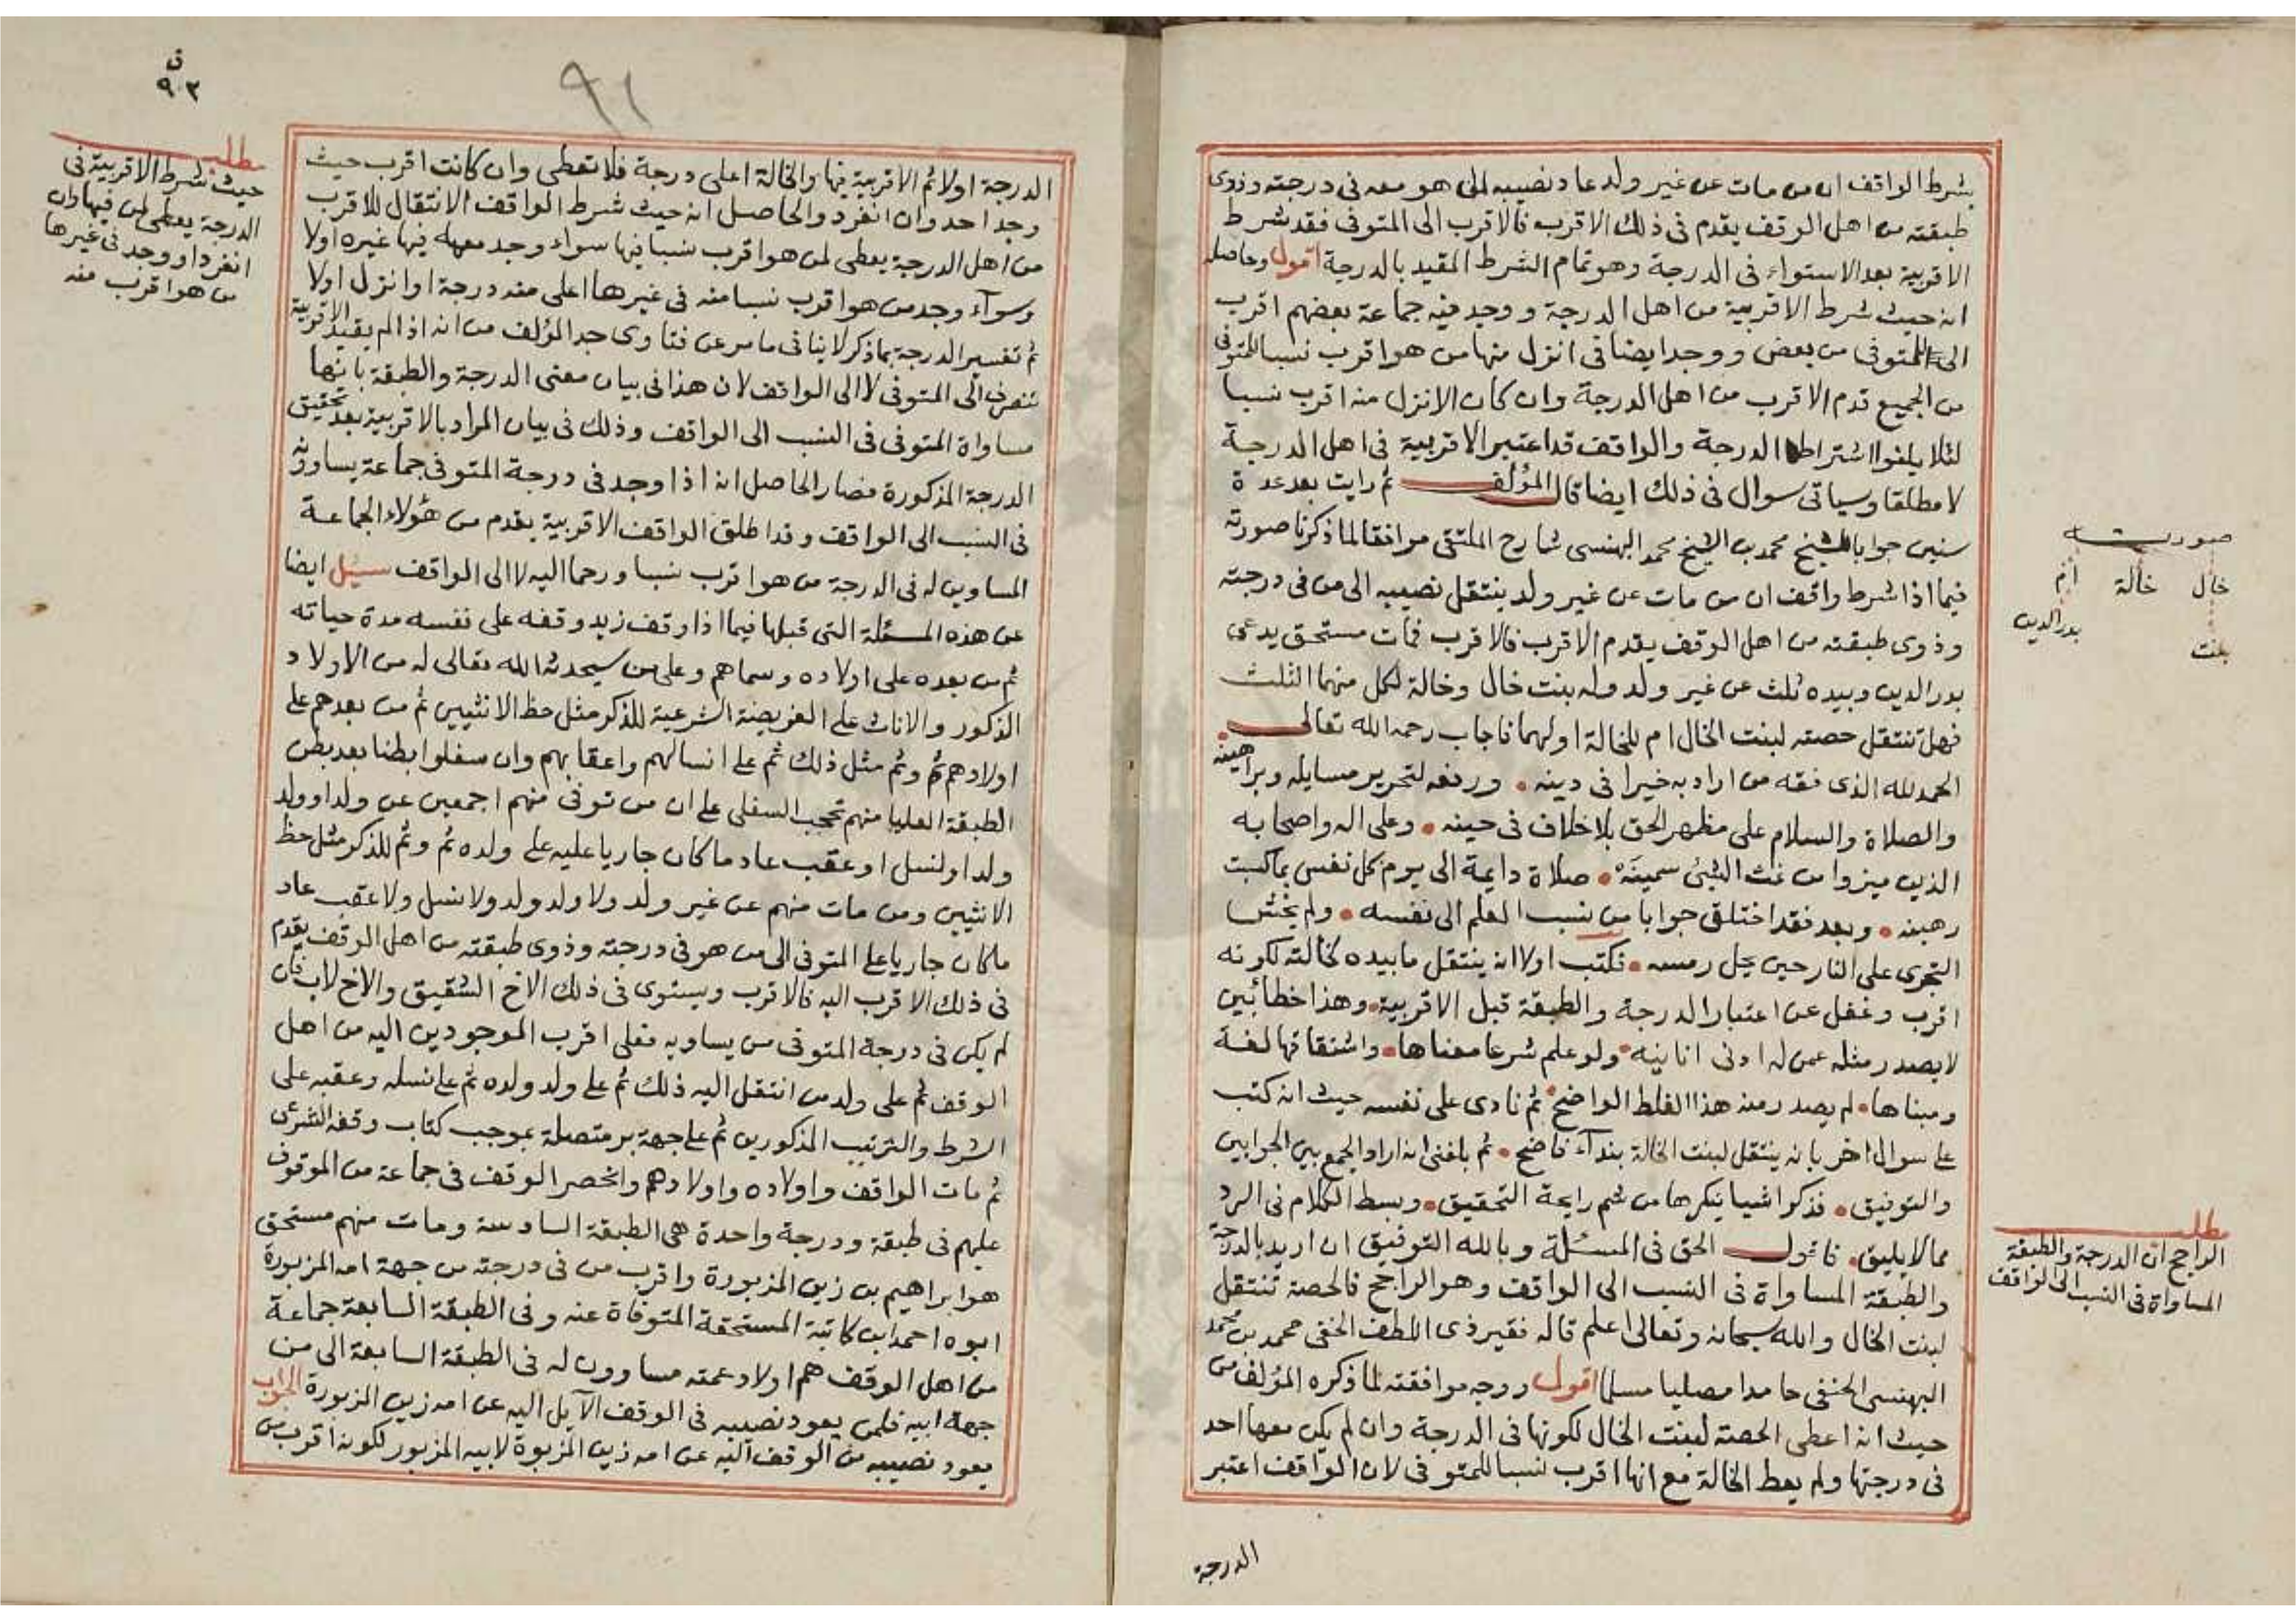 بشرط الواقف ان من مات عن غير ولد عاد نصيبه الى هو معه فى درجته وذوى
طبقته من اهل الوقف يقدم فى ذلك الاقرب فالاقرب الى المتوفى فقد شرط
الاقربية بعد الاستواء فى الدرجة وهو تمام الشرط المقيد بالدرجة اقول وحاصله
انه حيث شرط الاقربية من اهل الدرجة ووجد فيه جماعة بعضهم اقرب
الى المتوفى من بعض ووجد ايضا فى انزل منها من هو اقرب نسبا للمتوفى
من الجميع قدم الاقرب من اهل الدرجة وان كان الانزل منه اقرب نسبا
لئلا يلغوا اشتراط الدرجة والواقف قد اعتبر الاقربية فى اهل الدرجة
لا مطلقا وسياتى سوال فى ذلك ايضا قال المؤلف ثم رايت بعد عدة
سنين جوابا للشيخ محمد بن الشيخ محمد البهنسى شارح الملتقى موافقا لما ذكرنا صورته
فيما اذا شرط واقف ان من مات عن غير ولد ينتقل نصيبه الى من فى درجته
وذوى طبقته من اهل الوقف يقدم الاقرب فالاقرب فمات مستحق يدعى
بدر الدين وبيده ثلث عن غير ولد وله بنت خال وخالة لكل منهما الثلث
فهل تنتقل حصته لبنت الخال ام للخالة او لهما فاجاب رحمه الله تعالى
الحمد لله الذى فقه من اراد به خيرا فى دينه . ورفعه لتحرير مسايله وبراهينه
والصلاة والسلام على مظهر الحق بلا خلاف فى حينه . وعلى اله واصحابه
الذين ميزوا من غث الشئ سمينه . صلاة دايمة الى يوم كل نفس بما كسبت
رهينه . وبعد فقد اختلق جوابا من نسب العلم الى نفسه . ولم يخش
التجرى على النار حين يحل رمسه . فكتب اولا انه ينتقل ما بيده لخالته لكونه
اقرب وغفل عن اعتبار الدرجة والطبقة قبل الاقربية . وهذا خطأ بين
لا يصدر مثله عمن له ادنى انانيه . ولو علم شرعا معناها . واشتقاقها لغة
ومبناها . لم يصدر منه هذا الغلط الواضح . ثم نادى على نفسه حيث انه كتب
على سوال اخر بانه ينتقل لبنت الخالة بندآء فاضح . ثم بلغنى انه اراد الجمع بين الجوابين
والتوفيق . فذكر اشيا ينكرها من شم رايحة التحقيق . وبسط الكلام فى الرد
مما لا يليق . فاقول الحق فى المسئلة وبالله التوفيق ان اريد بالدرجة
والطبقة المساواة فى النسب الى الواقف وهو الراجح فالحصة تنتقل
لبنت الخال والله سبحانه وتعالى اعلم قاله فقير ذى اللطف الخفى محمد بن محمد
البهنسى الحنفى حامدا مصليا مسلما اقول ووجه موافقته لما ذكره المؤلف من
حيث انه اعطى الحصة لبنت الخال لكونها فى الدرجة وان لم يكن معها احد
فى درجتها ولم يعط الخالة مع انها اقرب نسبا للمتوفى لان الواقف اعتبر
الدرجة
صورت
خال خالة ام
بنت بدر الدين
مطلب
الراجح ان الدرجة والطبقة
المساواة فى النسب الى الواقف
٩٢
٩١
الدرجة اولا ثم الاقربية فيها والخالة اعلى درجة فلا تعطى وان كانت اقرب حيث
وجد احد وان انفرد والحاصل انه حيث شرط الواقف الانتقال للاقرب
من اهل الدرجة يعطى لمن هو اقرب نسبا فيها سواء وجد معه فيها غيره اولا
وسوآء وجد من هو اقرب نسبا منه فى غيرها اعلى منه درجة او انزل اولا
ثم تفسير الدرجة بما ذكر لا ينافى ما مر عن فتاوى جد المؤلف من انه اذا لم يقيد الاقربية
تنصرف الى المتوفى لا الى الواقف لان هذا فى بيان معنى الدرجة والطبقة بانها
مساواة المتوفى فى النسب الى الواقف وذلك فى بيان المراد بالاقربية بعد تحقيق
الدرجة المذكورة فصار الحاصل انه اذا وجد فى درجة المتوفى جماعة يساوونه
فى النسب الى الواقف وقد اطلق الواقف الاقربية يقدم من هؤلاء الجماعة
المساوين له فى الدرجة من هو اقرب نسبا ورحما اليه لا الى الواقف سئل ايضا
عن هذه المسئلة التى قبلها فيما اذا وقف زيد وقفه على نفسه مدة حياته
ثم من بعده على اولاده وسماهم وعلى من سيحدثه الله تعالى له من الاولاد
الذكور والاناث على الفريضة الشرعية للذكر مثل حظ الانثيين ثم من بعدهم على
اولادهم ثم وثم مثل ذلك ثم على انسالهم واعقابهم وان سفلوا بطنا بعد بطن
الطبقة العليا منهم تحجب السفلى على ان من توفى منهم اجمعين عن ولد او ولد
ولد او نسل او عقب عاد ما كان جاريا عليه على ولده ثم وثم للذكر مثل حظ
الانثيين ومن مات منهم عن غير ولد ولا ولد ولد ولا نسل ولا عقب عاد
ما كان جاريا على المتوفى الى من هو فى درجته وذوى طبقته من اهل الوقف يقدم
فى ذلك الاقرب اليه فالاقرب ويستوى فى ذلك الاخ الشقيق والاخ لاب فان
لم يكن فى درجة المتوفى من يساويه فعلى اقرب الموجودين اليه من اهل
الوقف ثم على ولد من انتقل اليه ذلك ثم على ولد ولده ثم على نسله وعقبه على
الشرط والترتيب المذكورين ثم على جهة بر متصلة بموجب كتاب وقفه الشرعى
ثم مات الواقف واولاده واولادهم وانحصر الوقف فى جماعة من الموقوف
عليهم فى طبقة ودرجة واحدة هى الطبقة السادسة ومات منهم مستحق
هو ابراهيم بن زين المزبورة واقرب من فى درجته من جهة امه المزبورة
ابوه احمد ابن كاتبة المستحقة المتوفاة عنه وفى الطبقة السابعة جماعة
من اهل الوقف هم اولاد عمته مساوون له فى الطبقة السابعة الى من
جهة ابيه فلمن يعود نصيبه فى الوقف الآيل اليه عن امه زين المزبورة الجواب
يعود نصيبه من الوقف اليه عن امه زين المزبورة لابيه المزبور لكونه اقرب من
مطلب
حيث شرط الاقربية فى
الدرجة يعطى لمن فيها وان
انفرد او وجد فى غيرها
من هو اقرب منه